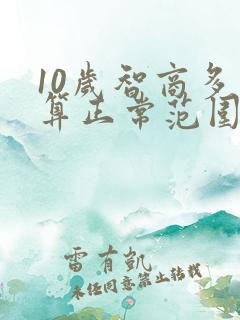 10岁智商多
算正常范围
雷有凯
未经同意禁止转载